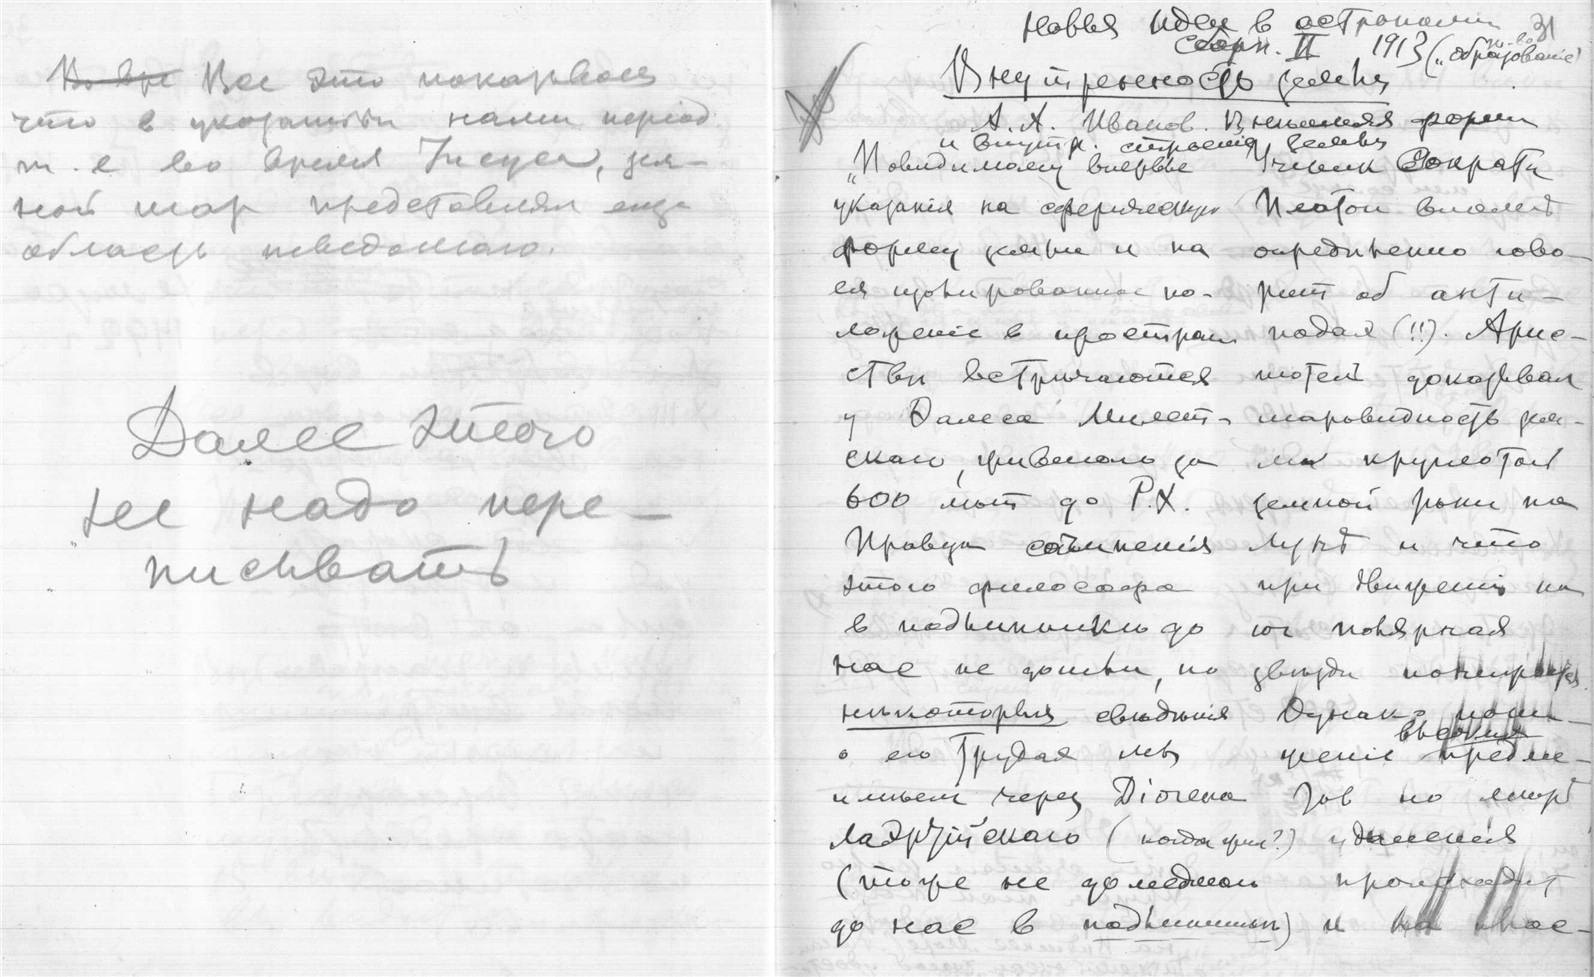 Во вре Все это показывает
что в указанный нами период
т. е во время Иисуса, зем-
ной шар представлял еще
область неведомаго.
Далее этого
не надо пере-
писывать
Новыя идеи в астрономии 31
сборн. II 1913 („Образование"
Внутренность земли
А. А. Иванов. Внешняя форма
и внутр. строение Земли
„Повидимому впервые
указания на сферическую
форму земли и на
ея изолированное по-
ложение в простран
стве встречаются
у Фалеса Милет-
скаго, жившаго за
600 лет до Р.Х.
Правда сочинения
этого философа
в подлиннике до
нас не дошли, но
некоторыя сведения
о его трудах мы
имеем через Діогена
Лаэрт скаго (когда жил?)
(тоже не дошедшаго
до нас в подлиннике)
Ученик Сократа
Платон вполне
определенно гово-
рит об анти-
подах (!!). Арис-
тотель доказывал
шаровидность зем-
ли круглотой
земной тени на
луне и что
при движении на
юг полярная
звезда понижается
Однако пони-
жение высоких предме-
тов по мере
удаления
происходит
и на плос-